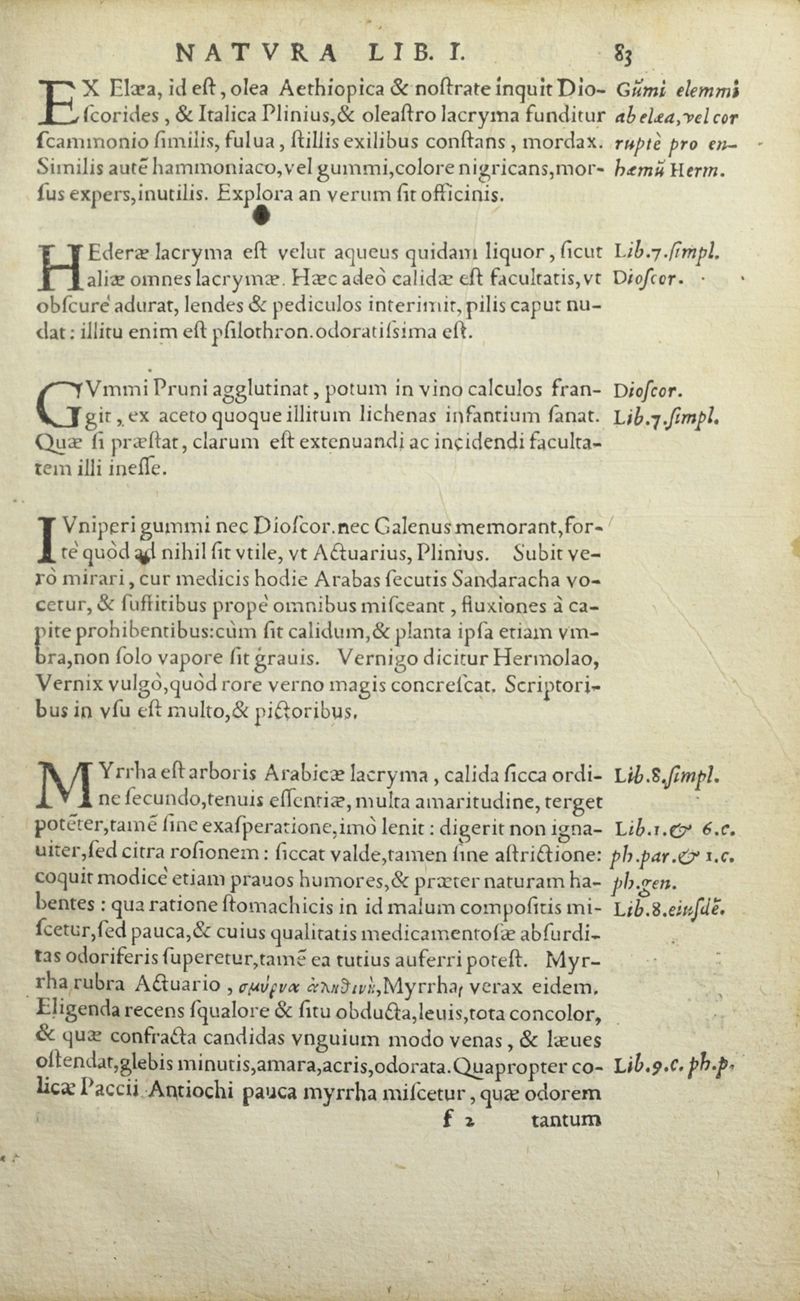 NATVRA LIB. I. 83
EX Elæa, id eſt, olea Aethiopica & noſtrate inquit Dio-
ſcorides, & Italica Plinius,& oleaſtro lacryma funditur
ſcammonio ſimilis, fulua, ſtillis exilibus conſtans, mordax.
Similis autē hammoniaco,vel gummi,colore nigricans,mor-
ſus expers,inutilis. Explora an verum ſit officinis.
Gūmi elemmi
ab elæa,vel cor
rupte pro en-
hæmū Herm.
HEderæ lacryma eſt velut aqueus quidam liquor, ſicut
aliæ omnes lacrymæ. Hæc adeò calidæ eſt facultatis,vt
obſcurè adurat, lendes & pediculos interimit, pilis caput nu-
dat: illitu enim eſt pſilothron.odoratiſsima eſt.
Lib.7.ſimpl.
Dioſcor.
GVmmi Pruni agglutinat, potum in vino calculos fran-
git, ex aceto quoque illitum lichenas infantium ſanat.
Quæ ſi præſtat, clarum eſt extenuandi ac incidendi faculta-
tem illi ineſſe.
Dioſcor.
Lib.7.ſimpl.
IVniperi gummi nec Dioſcor.nec Galenus memorant,for-
tè quòd ad nihil ſit vtile, vt Actuarius, Plinius. Subit ve-
rò mirari, cur medicis hodie Arabas ſecutis Sandaracha vo-
cetur, & ſuffitibus propè omnibus miſceant, fluxiones à ca-
pite prohibentibus:cùm ſit calidum,& planta ipſa etiam vm-
bra,non ſolo vapore ſit grauis. Vernigo dicitur Hermolao,
Vernix vulgò,quòd rore verno magis concreſcat. Scriptori-
bus in vſu eſt multo,& pictoribus.
MYrrha eſt arboris Arabicæ lacryma, calida ſicca ordi-
ne ſecundo,tenuis eſſentiæ, multa amaritudine, terget
potēter,tamē ſine exaſperatione,imò lenit: digerit non igna-
uiter,ſed citra roſionem: ſiccat valde,tamen ſine aſtrictione:
coquit modicè etiam prauos humores,& præter naturam ha-
bentes: qua ratione ſtomachicis in id malum compoſitis mi-
ſcetur,ſed pauca,& cuius qualitatis medicamentoſæ abſurdi-
tas odoriferis ſuperetur,tamē ea tutius auferri poteſt. Myr-
rha rubra Actuario, σμύρνα ἀληθινὴ,Myrrha, verax eidem.
Eligenda recens ſqualore & ſitu obducta,leuis,tota concolor,
& quæ confracta candidas vnguium modo venas, & læues
oſtendat,glebis minutis,amara,acris,odorata.Quapropter co-
licæ Paccii Antiochi pauca myrrha miſcetur, quæ odorem
Lib.8.ſimpl.
Lib.1.& 6.c.
ph.par.& 1.c.
ph.gen.
Lib.8.eiuſdē.
Lib.9.c.ph.p.
f 2 tantum